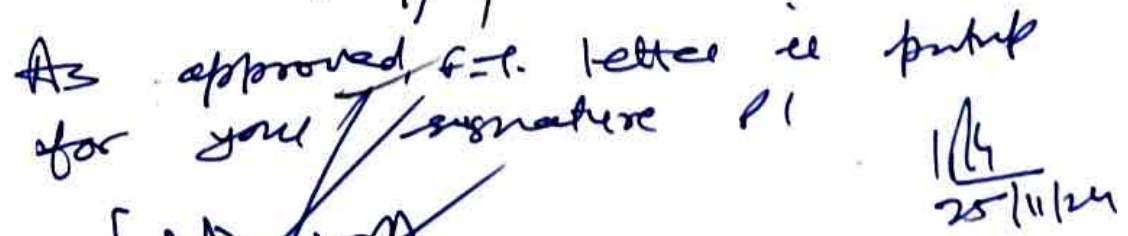 As approved, F.T. letter is putup
for your signature Pl
25/11/24